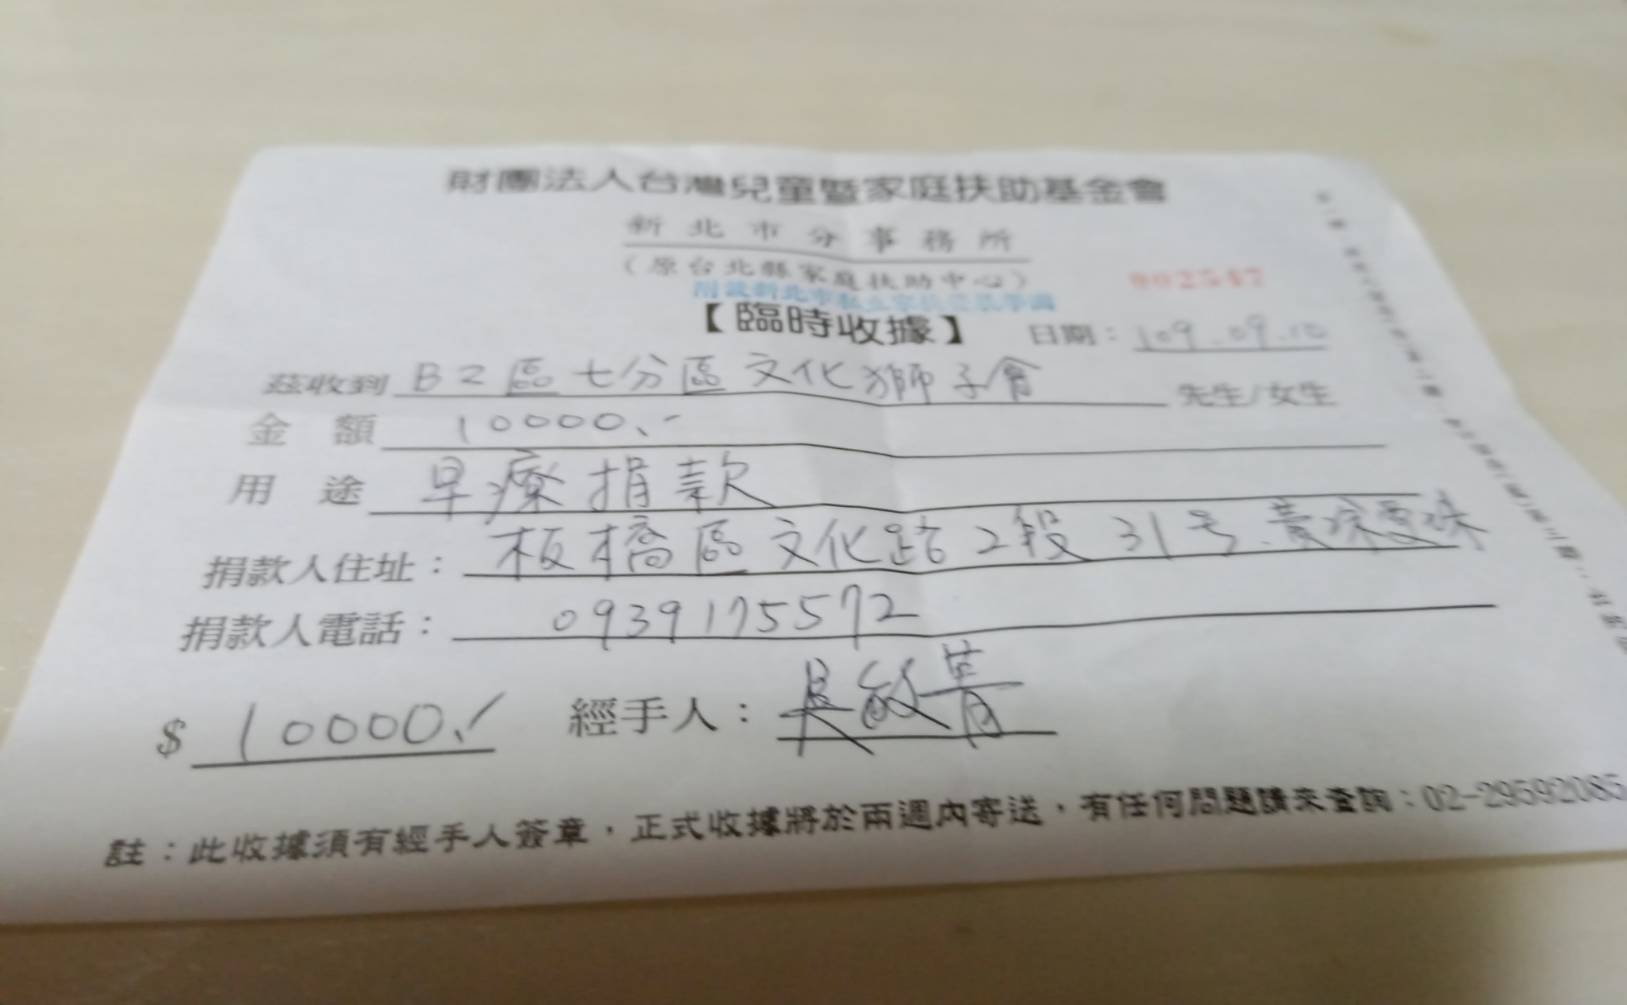 財團法人台灣兒童暨家庭扶助基金會
新北市分事務所
(原台北縣家庭扶助中心)
002547
【臨時收據】 日期：109.09.10
茲收到 B2區七分區文化獅子會 先生/女生
金額 10000.-
用途 早療捐款
捐款人住址： 板橋區文化路2段31号.黃
捐款人電話： 0939175572
$ 10000.- 經手人：吳敏菁
註：此收據須有經手人簽章，正式收據將於兩週內寄送，有任何問題請來查詢：02-29592085